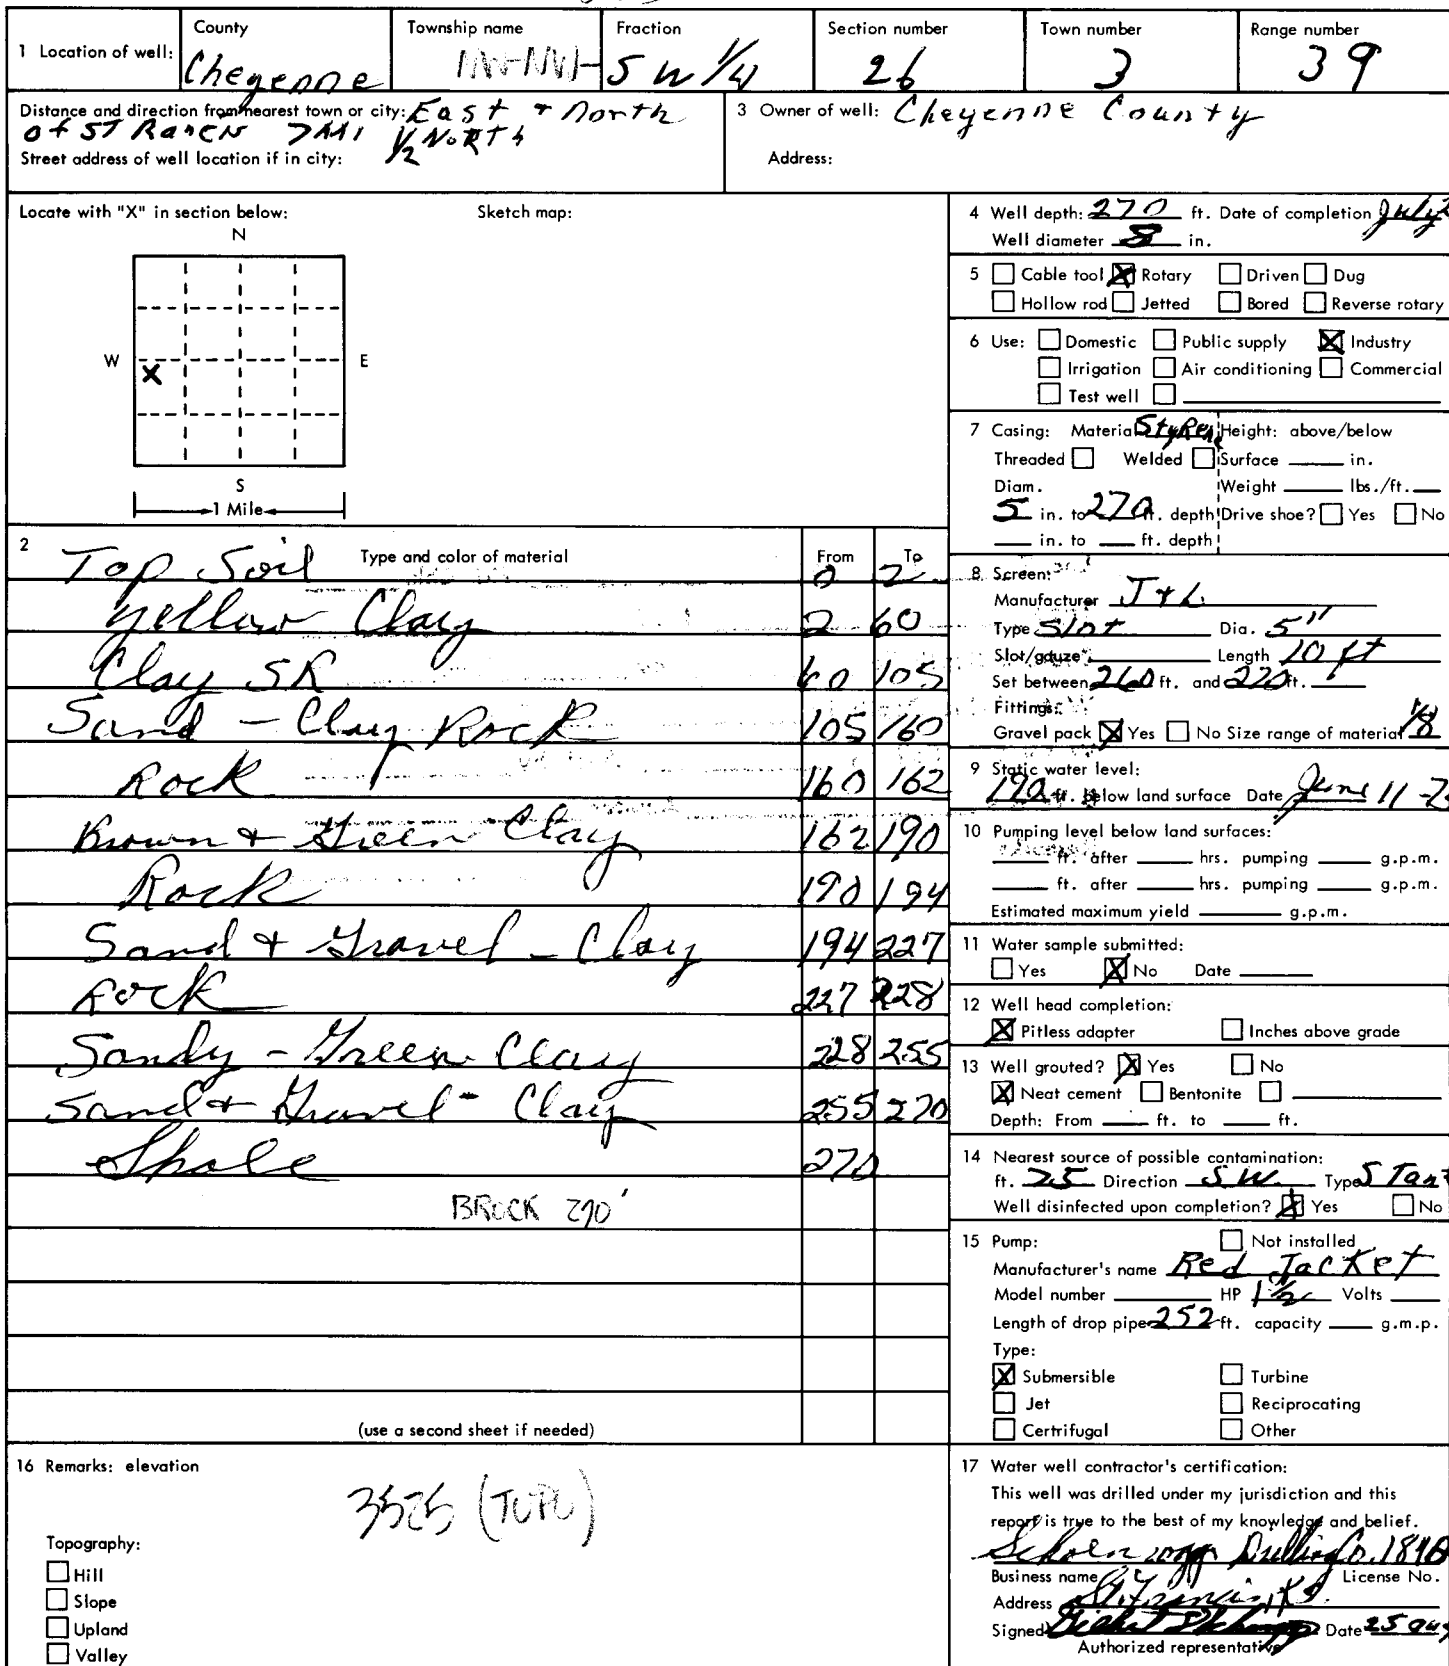 1 Location of well: County Township name Fraction Section number Town number Range number
Cheyenne NW-NW- SW 1/4 26 3 39
Distance and direction from nearest town or city: East + North
of ST 7 Mi 1/2 North
Street address of well location if in city:
3 Owner of well: Cheyenne County
Address:
Locate with "X" in section below: Sketch map:
N
W X E
S
1 Mile
2 Type and color of material From To
Top Soil 0 2
yellow Clay 2 60
Clay SR 60 105
Sand - Clay Rock 105 160
Rock 160 162
Brown + Green Clay 162 190
Rock 190 194
Sand + Gravel - Clay 194 227
Rock 227 228
Sandy - Green Clay 228 255
Sand + Gravel - Clay 255 270
Shale 270
BROCK 270'
(use a second sheet if needed)
16 Remarks: elevation
3525 (TOPO)
Topography:
Hill
Slope
Upland
Valley
4 Well depth: 270 ft. Date of completion July
Well diameter 8 in.
5 Cable tool X Rotary Driven Dug
Hollow rod Jetted Bored Reverse rotary
6 Use: Domestic Public supply X Industry
Irrigation Air conditioning Commercial
Test well
7 Casing: Material Styrene Height: above/below
Threaded Welded Surface in.
Diam. Weight lbs./ft.
5 in. to 270 ft. depth Drive shoe? Yes No
in. to ft. depth
8 Screen:
Manufacturer J + L
Type Slot Dia. 5"
Slot/gauze Length 10 ft
Set between 260 ft. and 270 ft.
Fittings:
Gravel pack X Yes No Size range of material 1/8
9 Static water level:
190 ft. below land surface Date June 11 -7
10 Pumping level below land surfaces:
ft. after hrs. pumping g.p.m.
ft. after hrs. pumping g.p.m.
Estimated maximum yield g.p.m.
11 Water sample submitted:
Yes X No Date
12 Well head completion:
X Pitless adapter Inches above grade
13 Well grouted? X Yes No
X Neat cement Bentonite
Depth: From ft. to ft.
14 Nearest source of possible contamination:
ft. 25 Direction SW. Type S Tan
Well disinfected upon completion? X Yes No
15 Pump: Not installed
Manufacturer's name Red Jacket
Model number HP 1 1/2 Volts
Length of drop pipe 252 ft. capacity g.m.p.
Type:
X Submersible Turbine
Jet Reciprocating
Certrifugal Other
17 Water well contractor's certification:
This well was drilled under my jurisdiction and this
report is true to the best of my knowledge and belief.
Drilling Co. 184B
Business name License No.
Address St. Francis, KS.
Signed Date 25 aug
Authorized representative